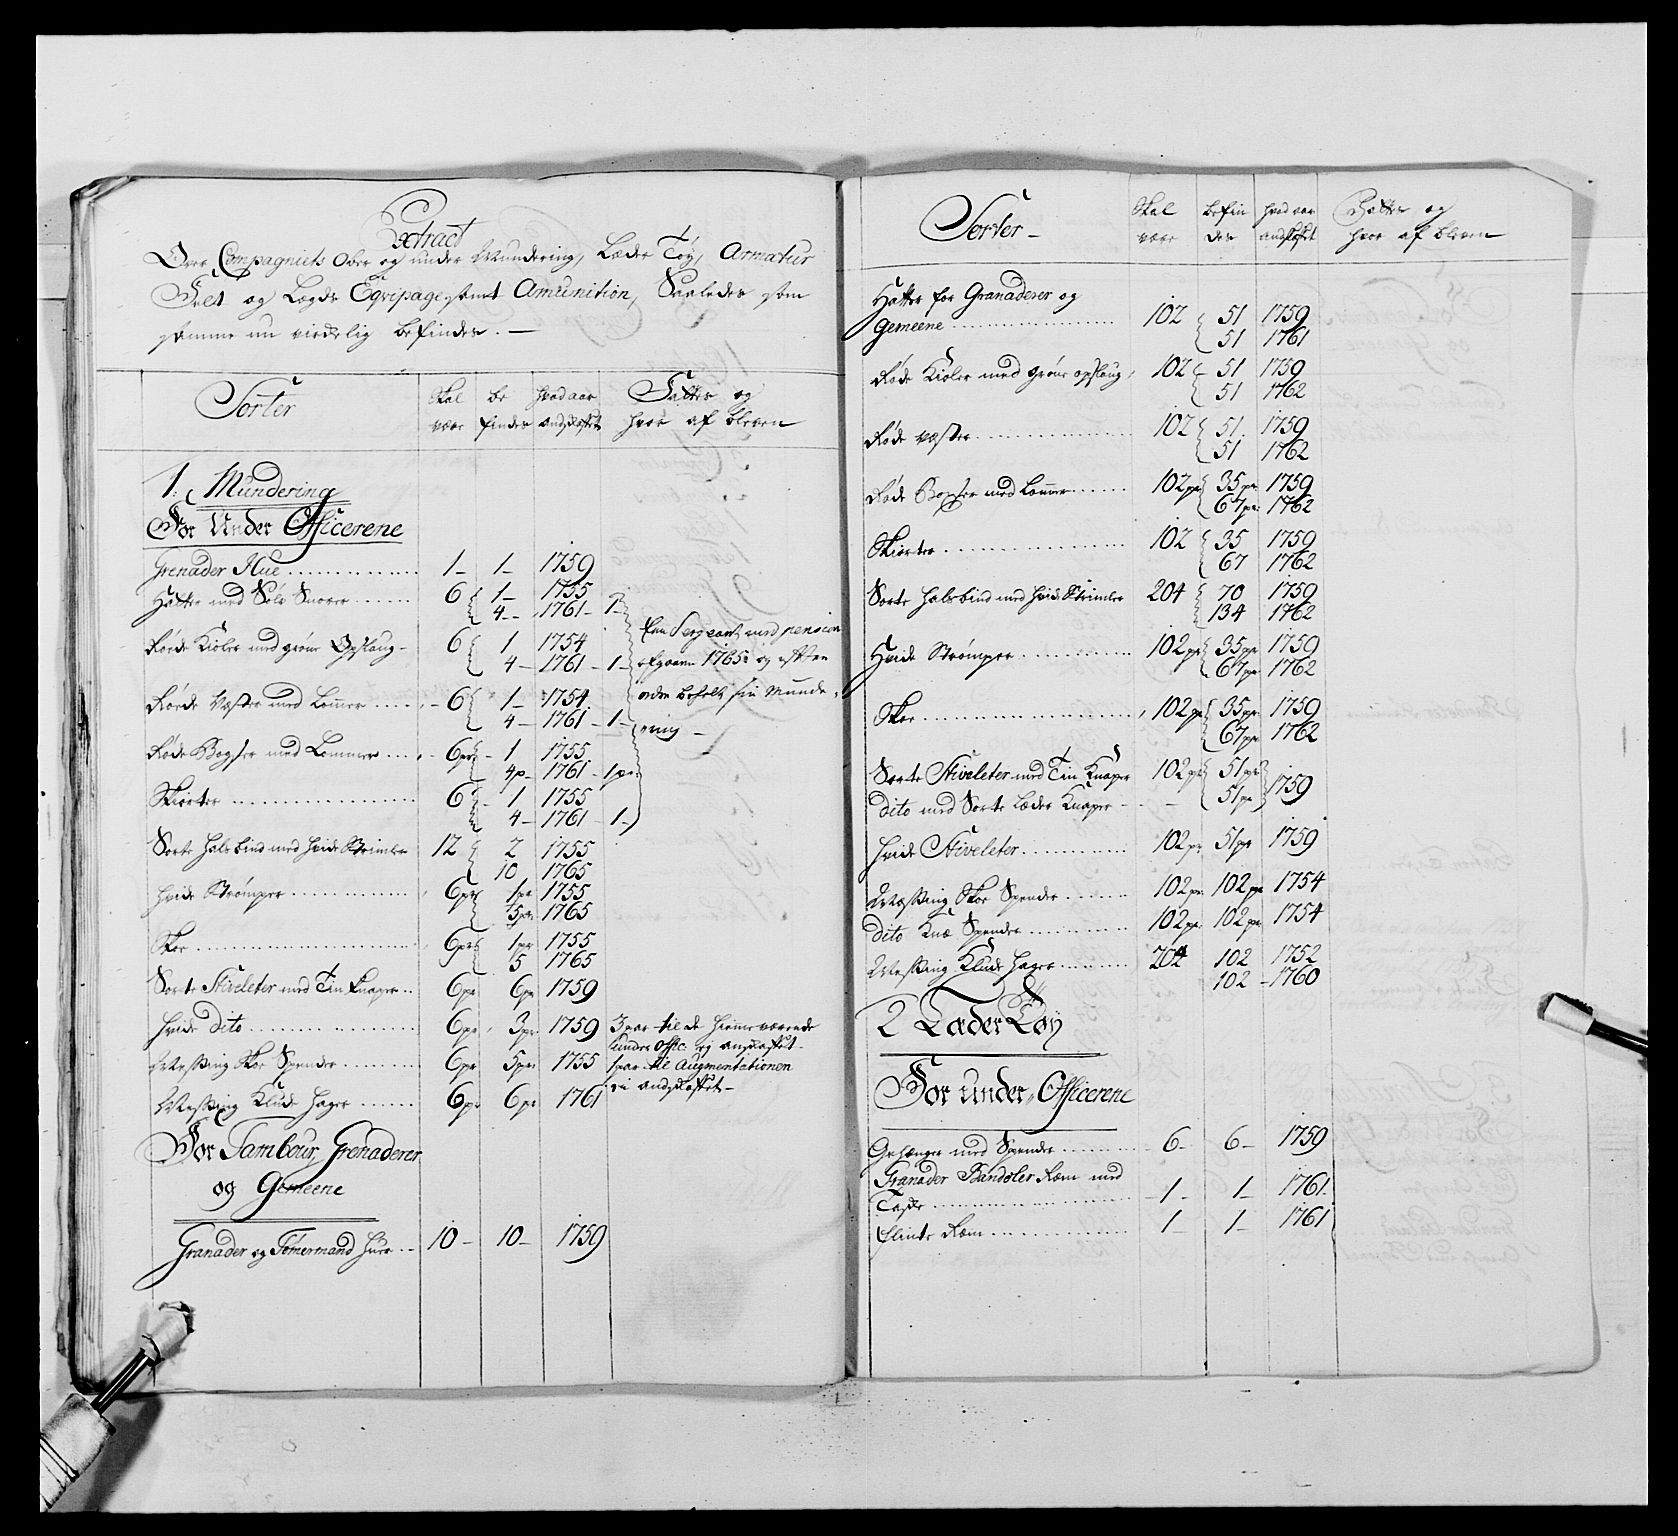 Extract
Over Compagniets Ober og under Mundering, Læder Tøy, Armatur
Felt og Lægds Eqvipage samt Amunition, Saaledes som
samme nu virkelig befindes. —
Sorter | Skal | be | hvad aar | Fattes og
være | findes | andskaffet | hvor af bleven
1. Mundering
For Under Officerene
Grenader Hue 1 — 1 — 1759
Hatter med Sølv Snorer 6 1 — 1755
4 — 1761 — 1 —
Røede Kioler med grøne Opslaug — 6 1 1754
4 — 1761 — 1 —
Røede Væster med Lommer — 6 1 — 1754
4 — 1761 — 1 —
Røde Boxser med Lommer — 6 pr — 1 1755
4 p — 1761 — 1 pr
Skiorter 6 — 1 1755
4 — 1761 — 1 —
Een Sergeant med pension
afgaaen 1765 og efter
orden beholt sin Munde-
ring —
Sorte Halsbind med hvide Strimler 12 2 1755
10 1765
hvide Strømper 6 pr 1 pr 1755
5 pr 1765
Skoe 6 pr 1 pr 1755
5 1765
Sorte Stiveleter med Tin knaper 6 pr 6 pr 1759
hvide dito 6 pr 3 pr 1759 3 par til de hiemeværende
under Offic: ej andskaffet
Messing Skoe Spender 6 pr 5 pr 1755 1 par til Augmentationen
ei andskaffet —
Messing Klude hager 6 pr 6 pr 1761
For Tambour, Grenaderer
og Gemeene
Granader og Tømermand huer 10 — 10 — 1759
Sorter — | Skal | befin | hvad aar | Fattes og
være | des | andskaffet | hvor af bleven
Hatter for Granaderer og
Gemeene 102 51 1759
51 1761
Røde Kioler med grøne opslaug 102 51 1759
51 1762
Røde væster 102 51 1759
51 1762
Røde Boxser med Lommer 102 pr 35 pr 1759
67 pr 1762
Skiorter 102 35 1759
67 1762
Sorte Halsbind med hvide Strimler 204 70 1759
134 1762
Hvide Strømper 102 pr 35 pr 1759
67 pr 1762
Skoe 102 pr 35 pr 1759
67 pr 1762
Sorte Stiveleter med Tin Knaper 102 pr 51 pr 1759
dito med Sorte Læder Knaper — — 51 pr
hvide Stiveleter 102 pr 51 pr 1759
Messing Skoe Spender 102 pr 102 pr 1754
dito Knæ Spender 102 pr 102 pr 1754
Messing Klude hager 204 102 1752
102 — 1760
2 Læder Tøy
For under Officerene
Gehænger med Spender 6 — 6 — 1759
Granader Bandoler Rem med
Taske 1 — 1 — 1761
flinte Rem 1 — 1 — 1761